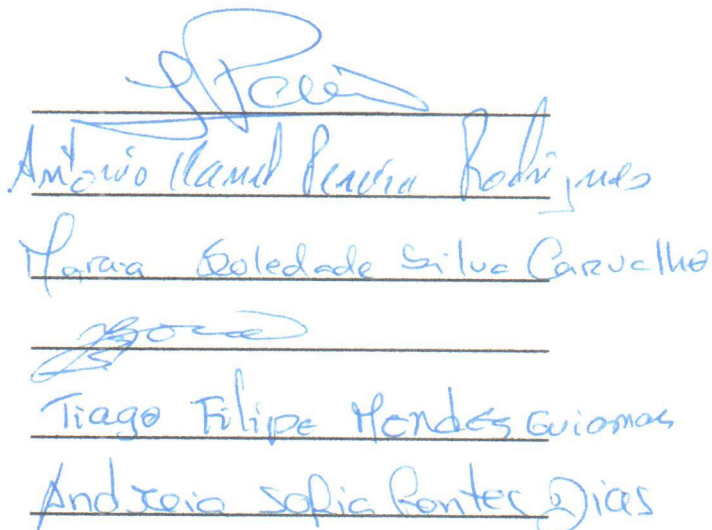 António Manuel Pereira Rodrigues
Maria Soledade Silva Carvalho
Tiago Filipe Mendes Guiomar
Andreia Sofia Pontes Dias